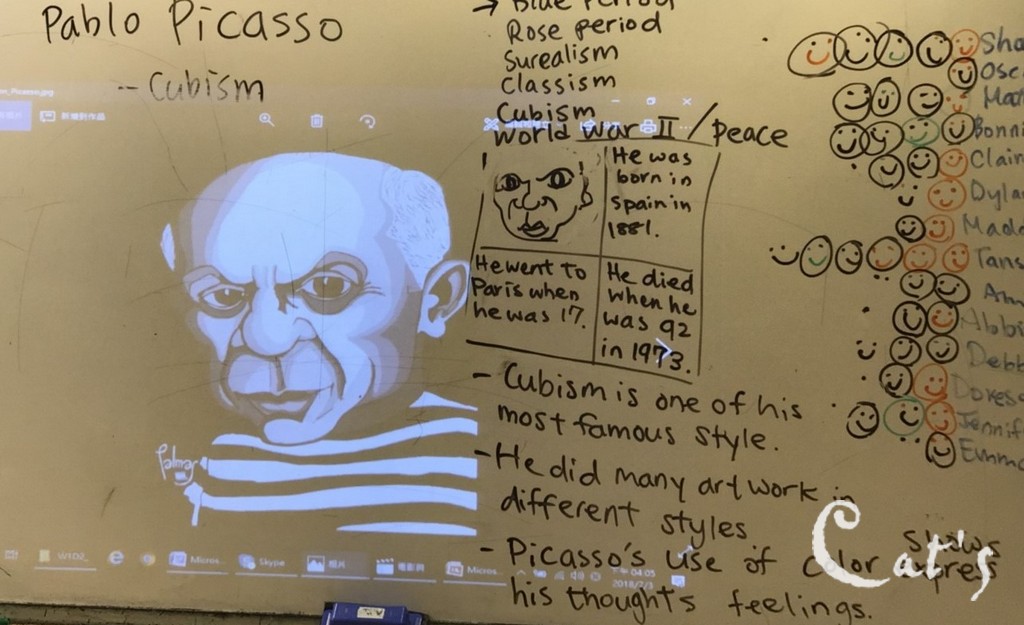 Pablo Picasso
-- Cubism
→ Blue period
Rose period
Surealism
Classism
Cubism
World War II / peace
He was
born in
Spain in
1881.
He went to
Paris when
he was 17.
He died
when he
was 92
in 1973.
- Cubism is one of his
most famous style.
- He did many artwork in
different styles
- Picasso's use of color shows
express
his thoughts feelings.
Sha
Ose
Mat
Bonni
Clair
Dylan
Madd
Tans
Am
Abbi
Debb
Dores
Jennif
Emma
_Picasso.jpg
新增到作品
Palmar
W1D2_
Micros...
Skype
相片
電影與
Micros...
下午 04:05
2018/2/3
Cat's